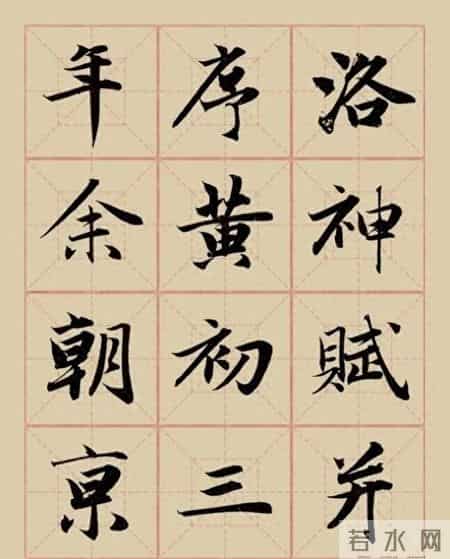 洛神賦并
序黄初三
年余朝京
若水网